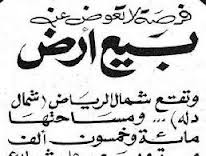 فرصة لا تعوض عنه
بيع أرض
وتقع شمال الرياض (شمال
دله) ... ومساحتها
مائة وخمسون ألف